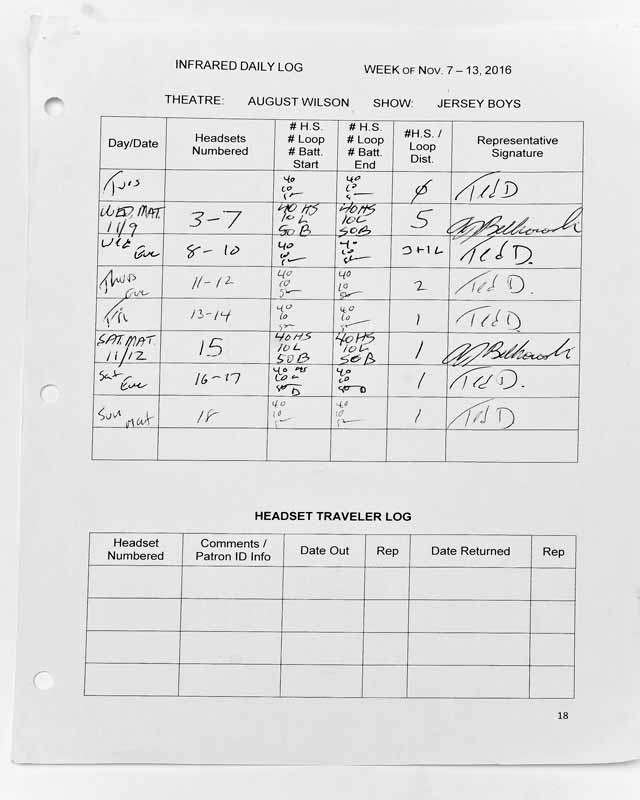 INFRARED DAILY LOG WEEK OF NOV. 7 – 13, 2016
THEATRE: AUGUST WILSON SHOW: JERSEY BOYS
Day/Date
Headsets
Numbered
# H.S.
# Loop
# Batt.
Start
# H.S.
# Loop
# Batt.
End
#H.S. /
Loop
Dist.
Representative
Signature
Tues
40
10
40
10
ϕ
Ted D
WED, MAT.
11/9
3-7
40 HS
10 L
50 B
40 HS
10 L
50 B
5
Wed
Eve
8-10
40
10
40
10
3+1L
Ted D.
Thurs
Eve
11-12
40
10
40
10
2
Ted D.
Fri
13-14
40
10
40
10
1
Ted D
SAT. MAT.
11/12
15
40 HS
10 L
50 B
40 HS
10 L
50 B
1
Sat
Eve
16-17
40 HS
10
50
40
10
50
1
Ted D.
Sun
Mat
18
40
10
40
10
1
Ted D
HEADSET TRAVELER LOG
Headset
Numbered
Comments /
Patron ID Info
Date Out
Rep
Date Returned
Rep
18